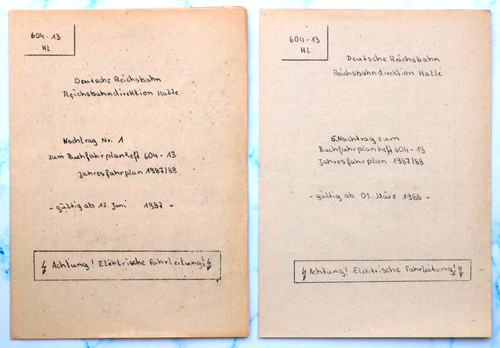 604-13
HL
Deutsche Reichsbahn
Reichsbahndirektion Halle
Nachtrag Nr. 1
zum Buchfahrplanheft 604-13
Jahresfahrplan 1987/88
- gültig ab 12. Juni 1987 -
Achtung! Elektrische Fahrleitung!
604-13
HL
Deutsche Reichsbahn
Reichsbahndirektion Halle
5. Nachtrag zum
Buchfahrplanheft 604-13
Jahresfahrplan 1987/88
- gültig ab 01. März 1988 -
Achtung! Elektrische Fahrleitung!